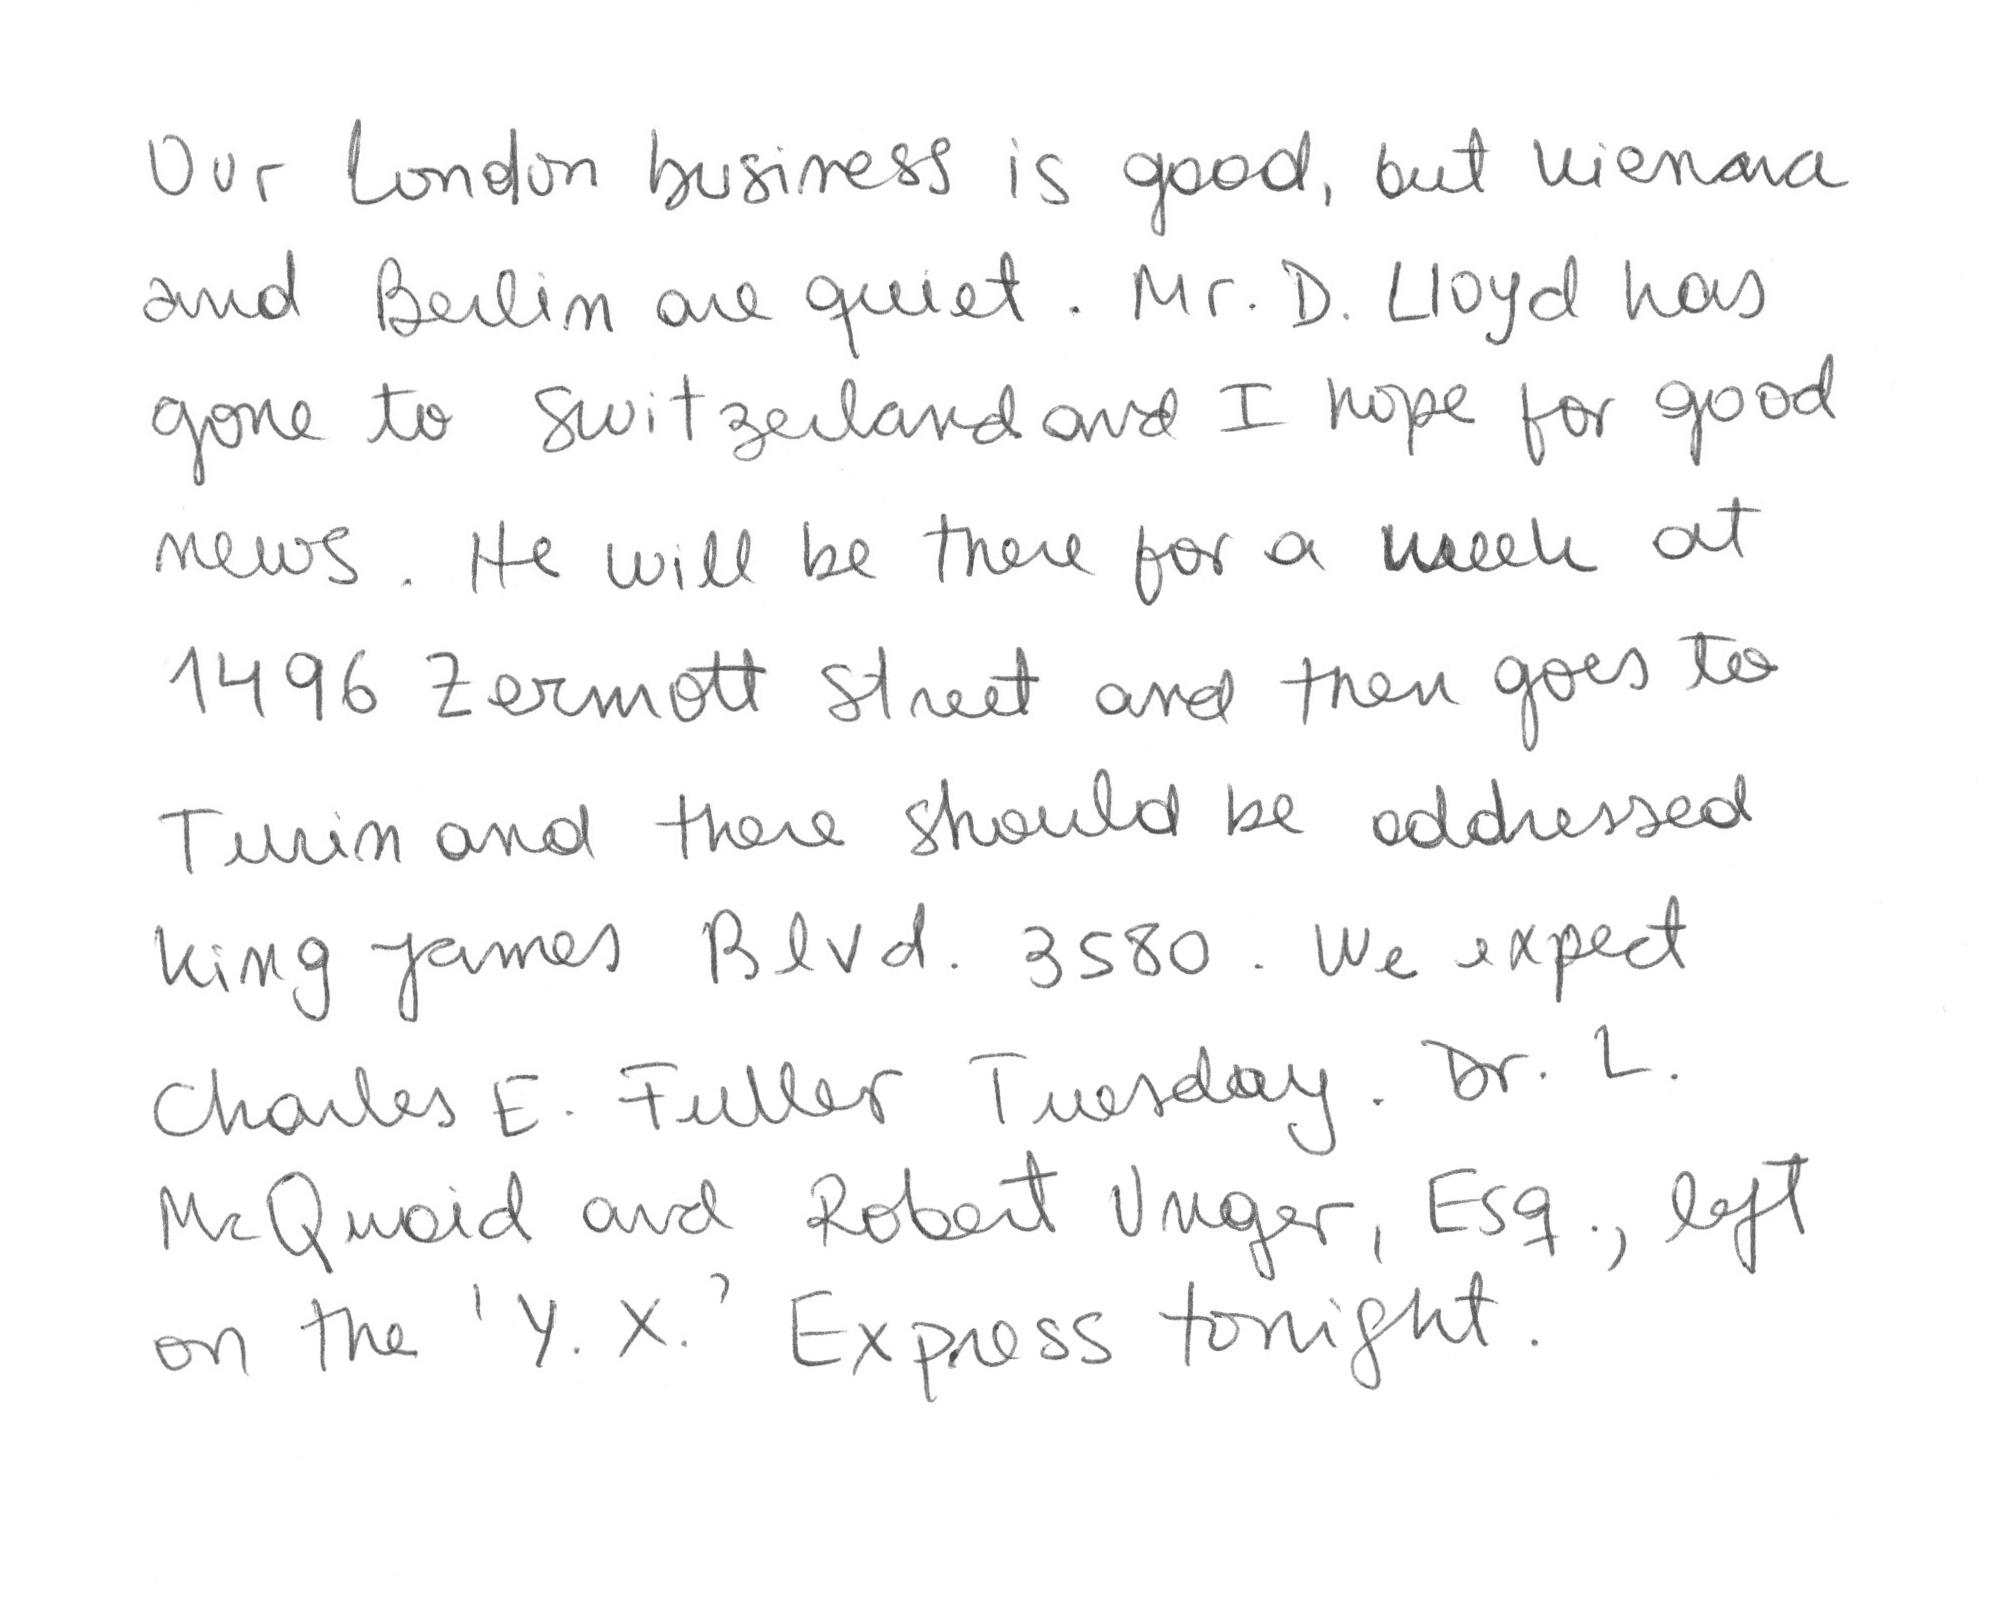 Our London business is good, but Vienna
and Berlin are quiet. Mr. D. Lloyd has
gone to Switzerland and I hope for good
news. He will be there for a week at
1496 Zermott Street and then goes to
Turin and there should be addressed
King James Blvd. 3580. We expect
Charles E. Fuller Tuesday. Dr. L.
McQuaid and Robert Unger, Esq., left
on the 'Y. X.' Express tonight.